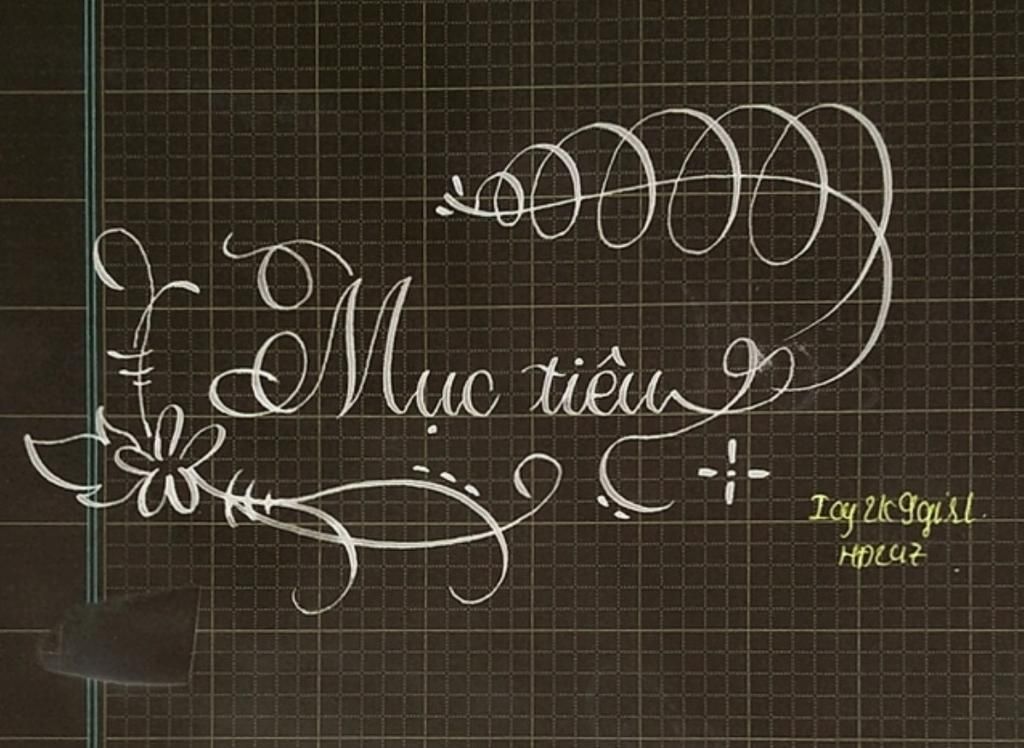 Mục tiêu
Icy2k9girl
HD247